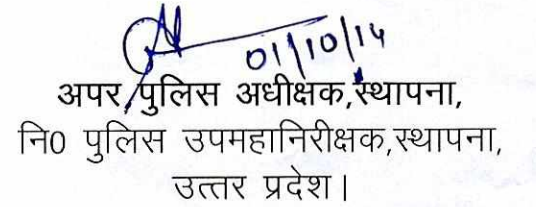 01/10/14
अपर पुलिस अधीक्षक,स्थापना,
नि0 पुलिस उपमहानिरीक्षक,स्थापना,
उत्तर प्रदेश।